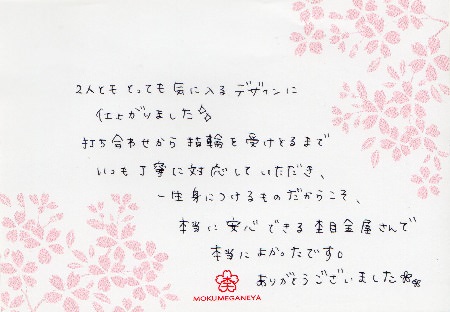 2人とも とっても 気に入る デザインに
仕上がりました
打ち合わせから 指輪を受けとるまで
いつも 丁寧に対応していただき、
一生身につけるものだからこそ、
本当に 安心できる 杢目金屋さんで
本当によかったです。
ありがとうございました
MOKUMEGANEYA